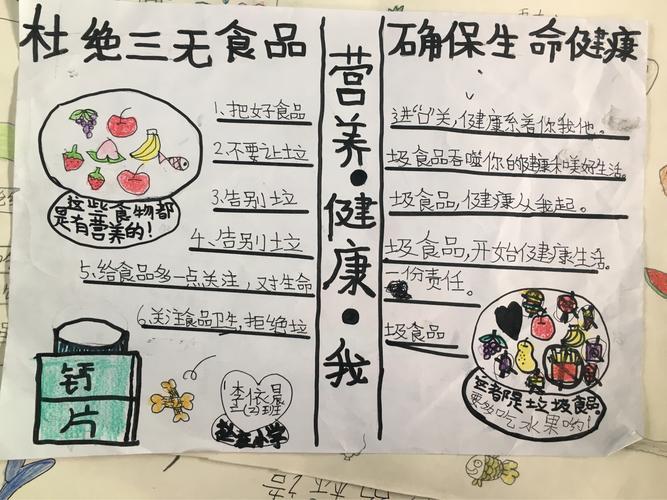 杜绝三无食品
确保生命健康
营养·健康·我
1、把好食品
进“口”关,健康系着你我他。
2、不要让垃
圾食品吞噬你的健康和美好生活。
3、告别垃
圾食品,健康从我起。
4、告别垃
圾食品,开始健康生活。
5、给食品多一点关注,对生命
一份责任。
6、关注食品卫生,拒绝垃
圾食品
这些食物都
是有营养的!
钙
片
李依晨
班
小学
这都是垃圾食品。
要多吃水果哟!